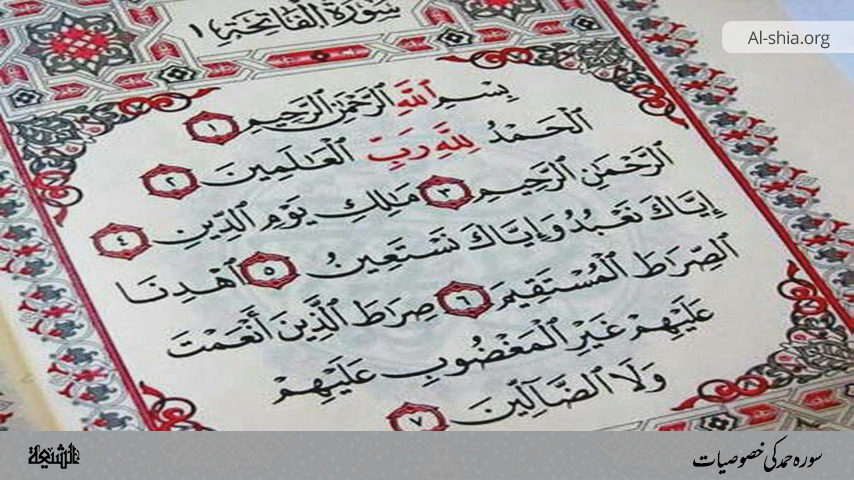 Al-shia.org
سورة الفاتحة ١
بِسْمِ ٱللَّهِ ٱلرَّحْمَٰنِ ٱلرَّحِيمِ ١
ٱلْحَمْدُ لِلَّهِ رَبِّ ٱلْعَٰلَمِينَ ٢
ٱلرَّحْمَٰنِ ٱلرَّحِيمِ ٣ مَٰلِكِ يَوْمِ ٱلدِّينِ ٤
إِيَّاكَ نَعْبُدُ وَإِيَّاكَ نَسْتَعِينُ ٥ ٱهْدِنَا
ٱلصِّرَاطَ ٱلْمُسْتَقِيمَ ٦ صِرَاطَ ٱلَّذِينَ أَنْعَمْتَ
عَلَيْهِمْ غَيْرِ ٱلْمَغْضُوبِ عَلَيْهِمْ
وَلَا ٱلضَّآلِّينَ ٧
سورہ حمد کی خصوصیات
الشیعة